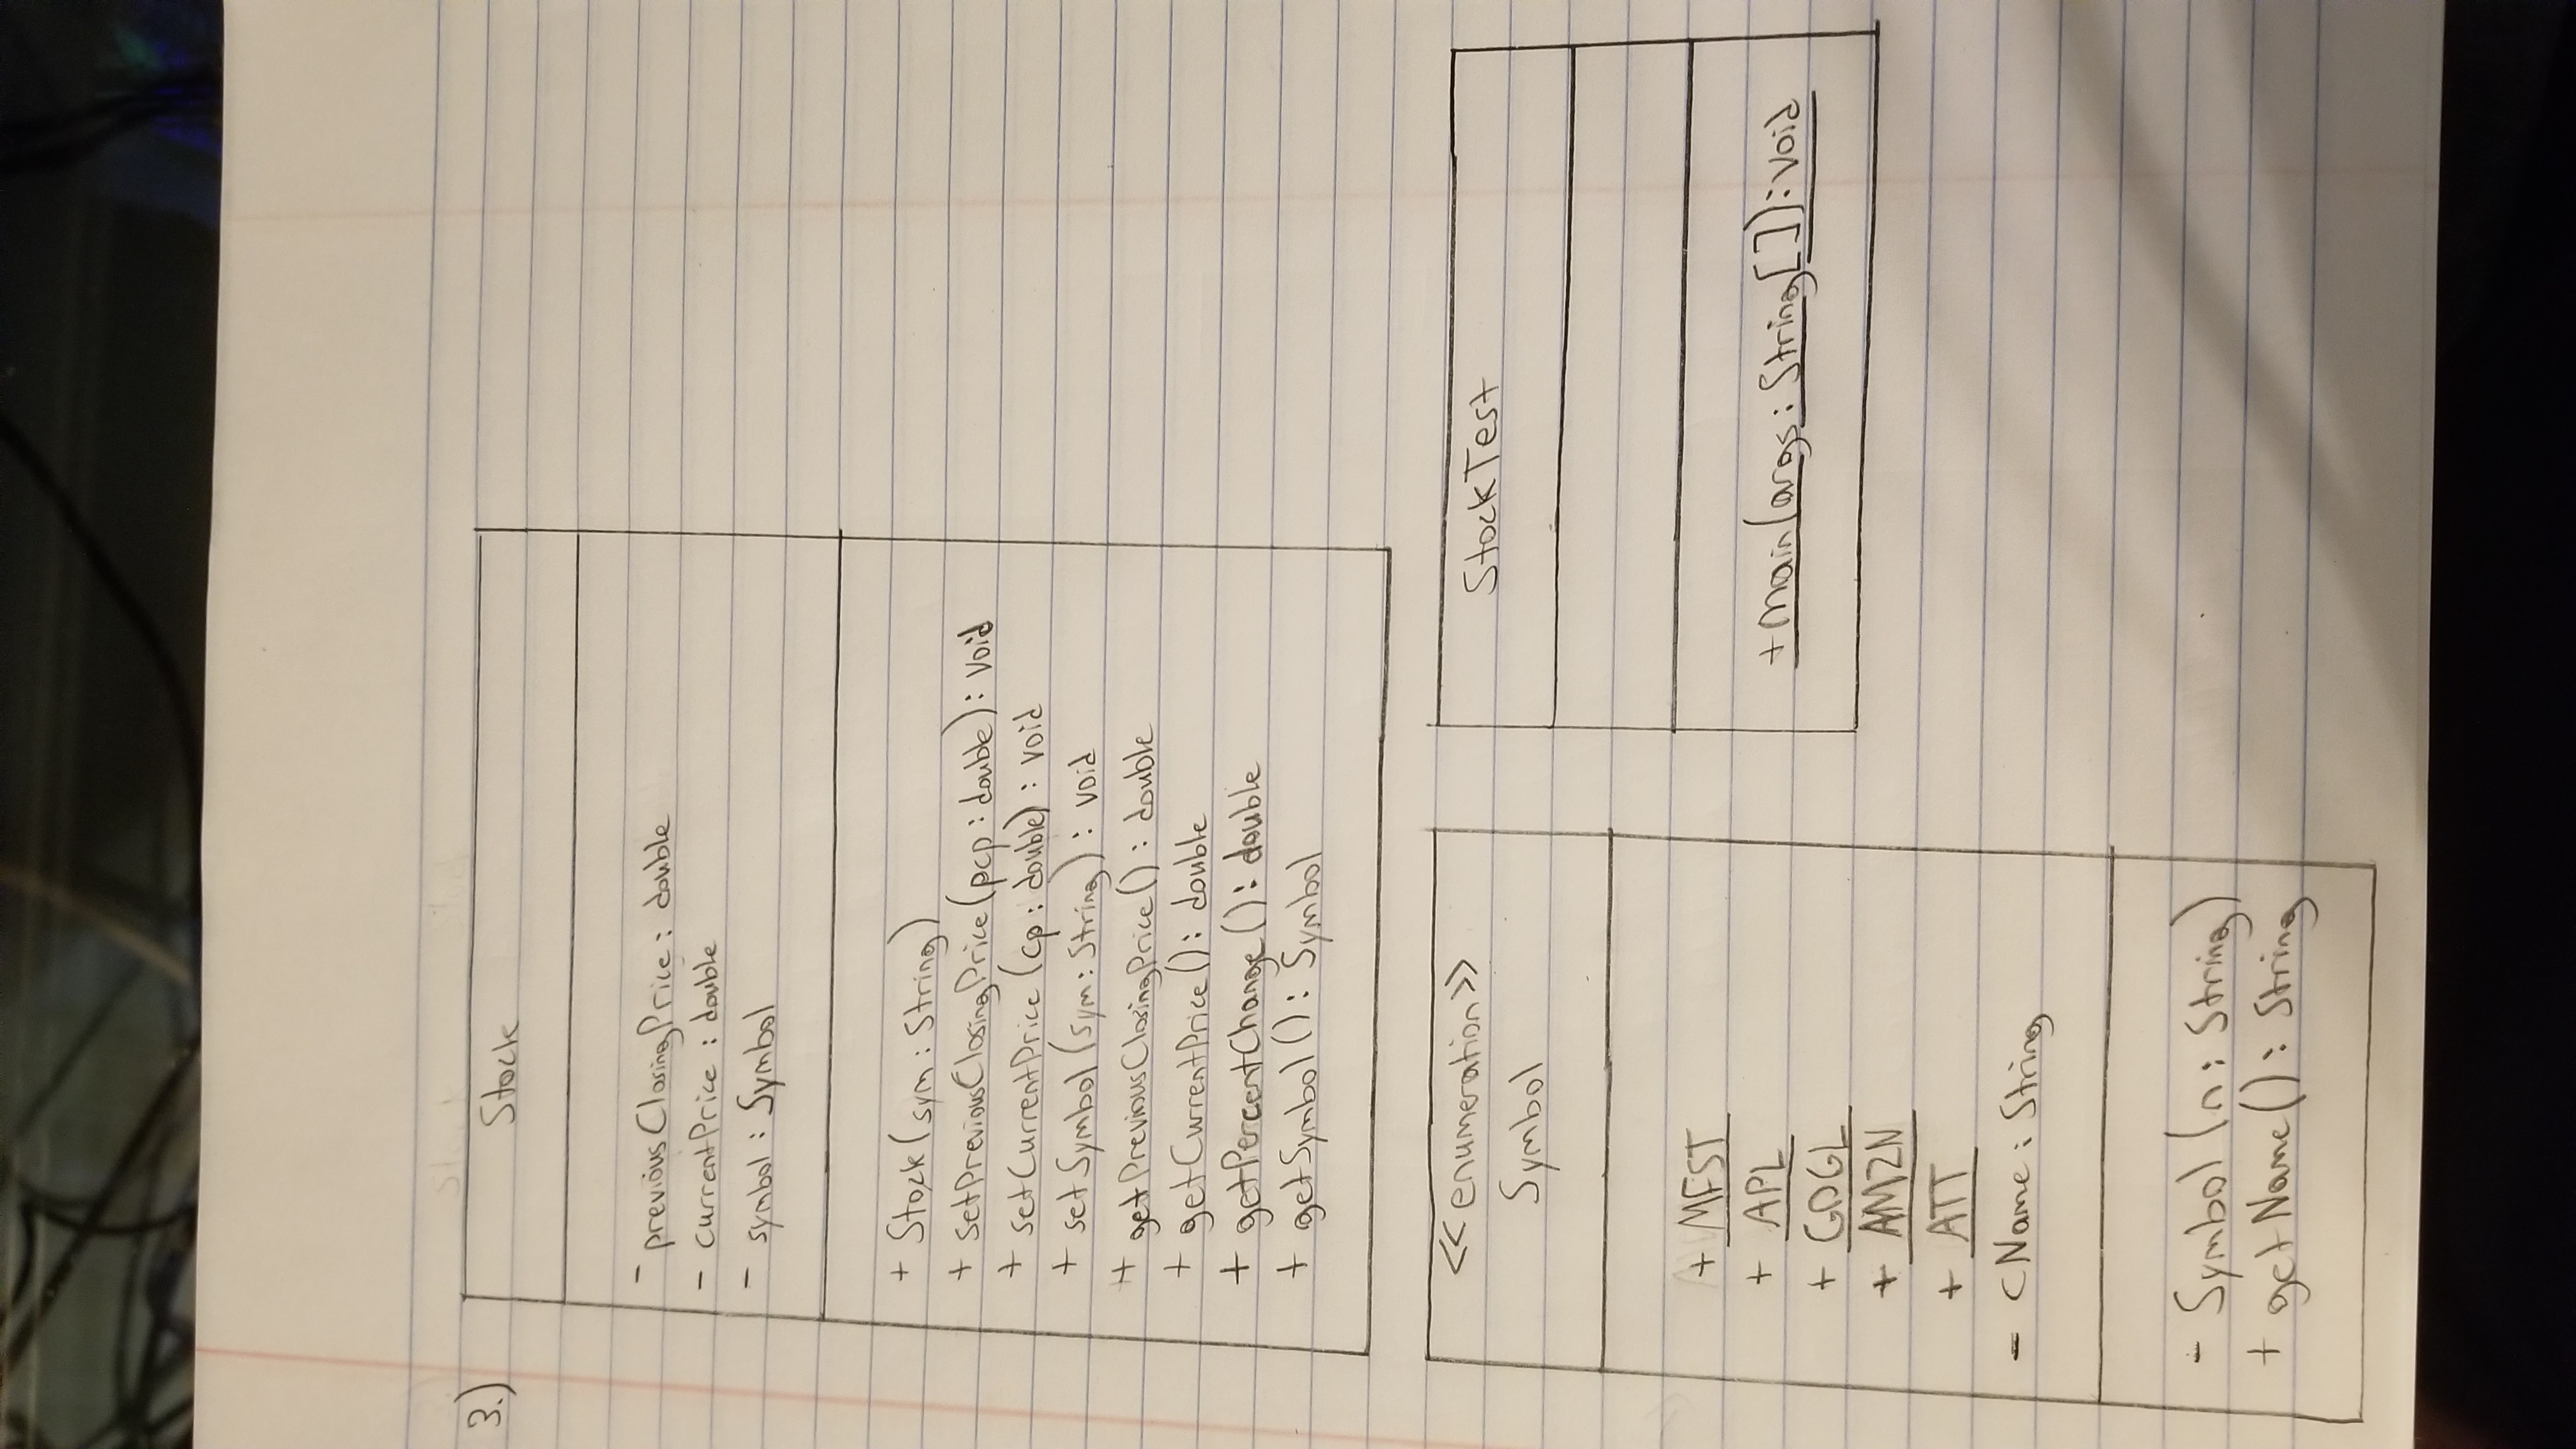 3.)
Stock
- previousClosingPrice : double
- currentPrice : double
- symbol : Symbol
+ Stock(sym : String)
+ setPreviousClosingPrice(pcp : double) : void
+ setCurrentPrice(cp : double) : void
+ setSymbol(sym : String) : void
+ getPreviousClosingPrice() : double
+ getCurrentPrice() : double
+ getPercentChange() : double
+ getSymbol() : Symbol
<<enumeration>>
Symbol
+ MFST
+ APL
+ GOGL
+ AMZN
+ ATT
- cName : String
- Symbol(n : String)
+ getName() : String
StockTest
+main(args : String[]) : void